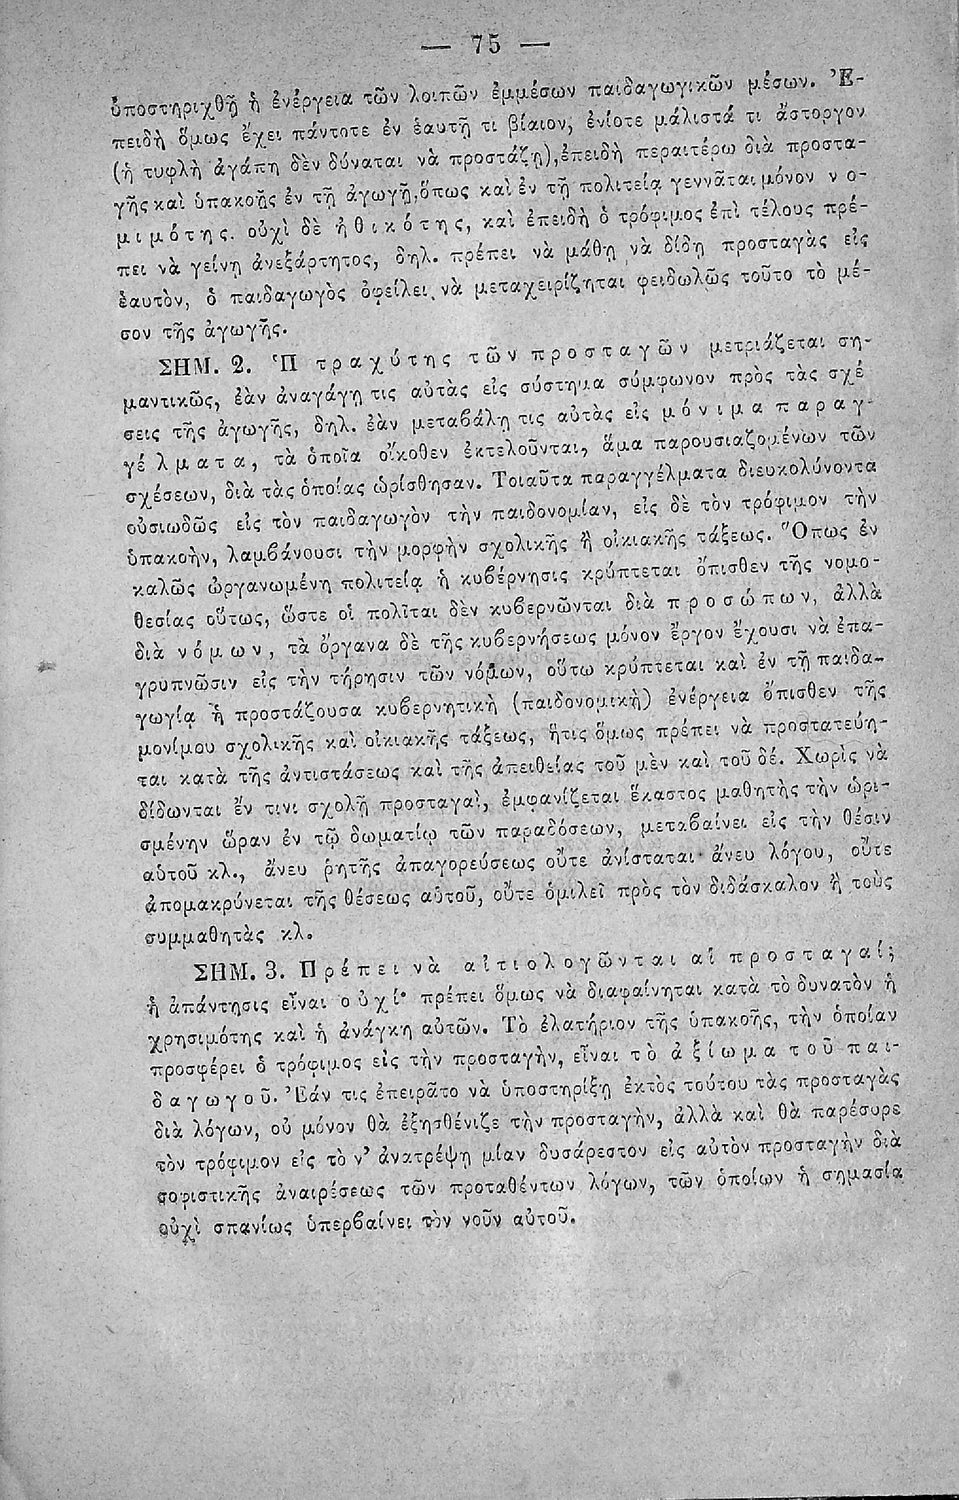 — 75 —
ὑποστηριχθῇ ἡ ἐνέργεια τῶν λοιπῶν ἐμμέσων παιδαγωγικῶν μέσων. Ἐ-
πειδὴ ὅμως ἔχει πάντοτε ἐν ἑαυτῇ τι βίαιον, ἐνίοτε μάλιστά τι ἄστοργον
(ἡ τυφλὴ ἀγάπη δὲν δύναται νὰ προστάζῃ), ἐπειδὴ περαιτέρω διὰ προστα-
γῆς καὶ ὑπακοῆς ἐν τῇ ἀγωγῇ, ὅπως καὶ ἐν τῇ πολιτείᾳ γεννᾶται μόνον ν ο-
μ ι μ ό τ η ς. οὐχὶ δὲ ἠ θ ι κ ό τ η ς, καὶ ἐπειδὴ ὁ τρόφιμος ἐπὶ τέλους πρέ-
πει νὰ γείνῃ ἀνεξάρτητος, δηλ. πρέπει νὰ μάθῃ νὰ δίδῃ προσταγὰς εἰς
ἑαυτὸν, ὁ παιδαγωγὸς ὀφείλει νὰ μεταχειρίζηται φειδωλῶς τοῦτο τὸ μέ-
σον τῆς ἀγωγῆς.
ΣΗΜ. 2. Ἡ τ ρ α χ ύ τ η ς τ ῶ ν π ρ ο σ τ α γ ῶ ν μετριάζεται ση-
μαντικῶς, ἐὰν ἀναγάγῃ τις αὐτὰς εἰς σύστημα σύμφωνον πρὸς τὰς σχέ
σεις τῆς ἀγωγῆς, δηλ. ἐὰν μεταβάλῃ τις αὐτὰς εἰς μ ό ν ι μ α π α ρ α γ-
γέ λ μ α τ α, τὰ ὁποῖα οἴκοθεν ἐκτελοῦνται, ἅμα παρουσιαζομένων τῶν
σχέσεων, διὰ τὰς ὁποίας ὡρίσθησαν. Τοιαῦτα παραγγέλματα διευκολύνοντα
οὐσιωδῶς εἰς τὸν παιδαγωγὸν τὴν παιδονομίαν, εἰς δὲ τὸν τρόφιμον τὴν
ὑπακοὴν, λαμβάνουσι τὴν μορφὴν σχολικῆς ἢ οἰκιακῆς τάξεως. Ὅπως ἐν
καλῶς ὠργανωμένῃ πολιτείᾳ ἡ κυβέρνησις κρύπτεται ὄπισθεν τῆς νομο-
θεσίας οὕτως, ὥστε οἱ πολῖται δὲν κυβερνῶνται διὰ π ρ ο σ ώ π ω ν, ἀλλὰ
διὰ ν ό μ ω ν, τὰ ὄργανα δὲ τῆς κυβερνήσεως μόνον ἔργον ἔχουσι νὰ ἐπα-
γρυπνῶσιν εἰς τὴν τήρησιν τῶν νόμων, οὕτω κρύπτεται καὶ ἐν τῇ παιδα-
γωγίᾳ ἡ προστάζουσα κυβερνητικὴ (παιδονομικὴ) ἐνέργεια ὄπισθεν τῆς
μονίμου σχολικῆς καὶ οἰκιακῆς τάξεως, ἥτις ὅμως πρέπει νὰ προστατεύη-
ται κατὰ τῆς ἀντιστάσεως καὶ τῆς ἀπειθείας τοῦ μὲν καὶ τοῦ δέ. Χωρὶς νὰ
δίδωνται ἔν τινι σχολῇ προσταγαὶ, ἐμφανίζεται ἕκαστος μαθητὴς τὴν ὡρι-
σμένην ὥραν ἐν τῷ δωματίῳ τῶν παραδόσεων, μεταβαίνει εἰς τὴν θέσιν
αὑτοῦ κλ., ἄνευ ῥητῆς ἀπαγορεύσεως οὔτε ἀνίσταται ἄνευ λόγου, οὔτε
ἀπομακρύνεται τῆς θέσεως αὑτοῦ, οὔτε ὁμιλεῖ πρὸς τὸν διδάσκαλον ἢ τοὺς
συμμαθητὰς κλ.
ΣΗΜ. 3. Π ρ έ π ε ι ν ὰ α ἰ τ ι ο λ ο γ ῶ ν τ α ι α ἱ π ρ ο σ τ α γ α ί;
ἡ ἀπάντησις εἶναι ο ὐ χ ί· πρέπει ὅμως νὰ διαφαίνηται κατὰ τὸ δυνατὸν ἡ
χρησιμότης καὶ ἡ ἀνάγκη αὐτῶν. Τὸ ἐλατήριον τῆς ὑπακοῆς, τὴν ὁποίαν
προσφέρει ὁ τρόφιμος εἰς τὴν προσταγὴν, εἶναι τ ὸ ἀ ξ ί ω μ α τ ο ῦ π α ι-
δ α γ ω γ ο ῦ. Ἐάν τις ἐπειρᾶτο νὰ ὑποστηρίξῃ ἐκτὸς τούτου τὰς προσταγὰς
διὰ λόγων, οὐ μόνον θὰ ἐξησθένιζε τὴν προσταγὴν, ἀλλὰ καὶ θὰ παρέσυρε
τὸν τρόφιμον εἰς τὸ ν’ ἀνατρέψῃ μίαν δυσάρεστον εἰς αὐτὸν προσταγὴν διὰ
σοφιστικῆς ἀναιρέσεως τῶν προταθέντων λόγων, τῶν ὁποίων ἡ σημασία
οὐχὶ σπανίως ὑπερβαίνει τὸν νοῦν αὐτοῦ.